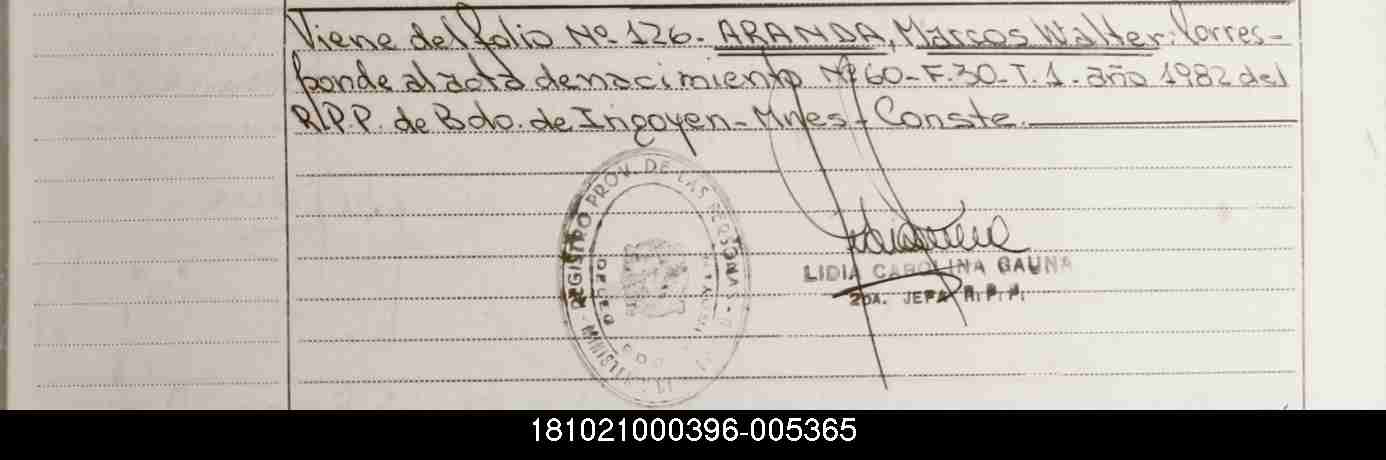 Viene del folio Nº 126- ARANDA, Marcos Walter. Corres-
ponde al acta de nacimiento Nº 60- F.30- T.1- año 1982 del
R.P.P. de Bdo. de Irigoyen- Mnes- Conste.
REGISTRO PROV. DE LAS PERSONAS
LIDIA CAROLINA GAUNA
2DA. JEFA R.P.P.
181021000396-005365